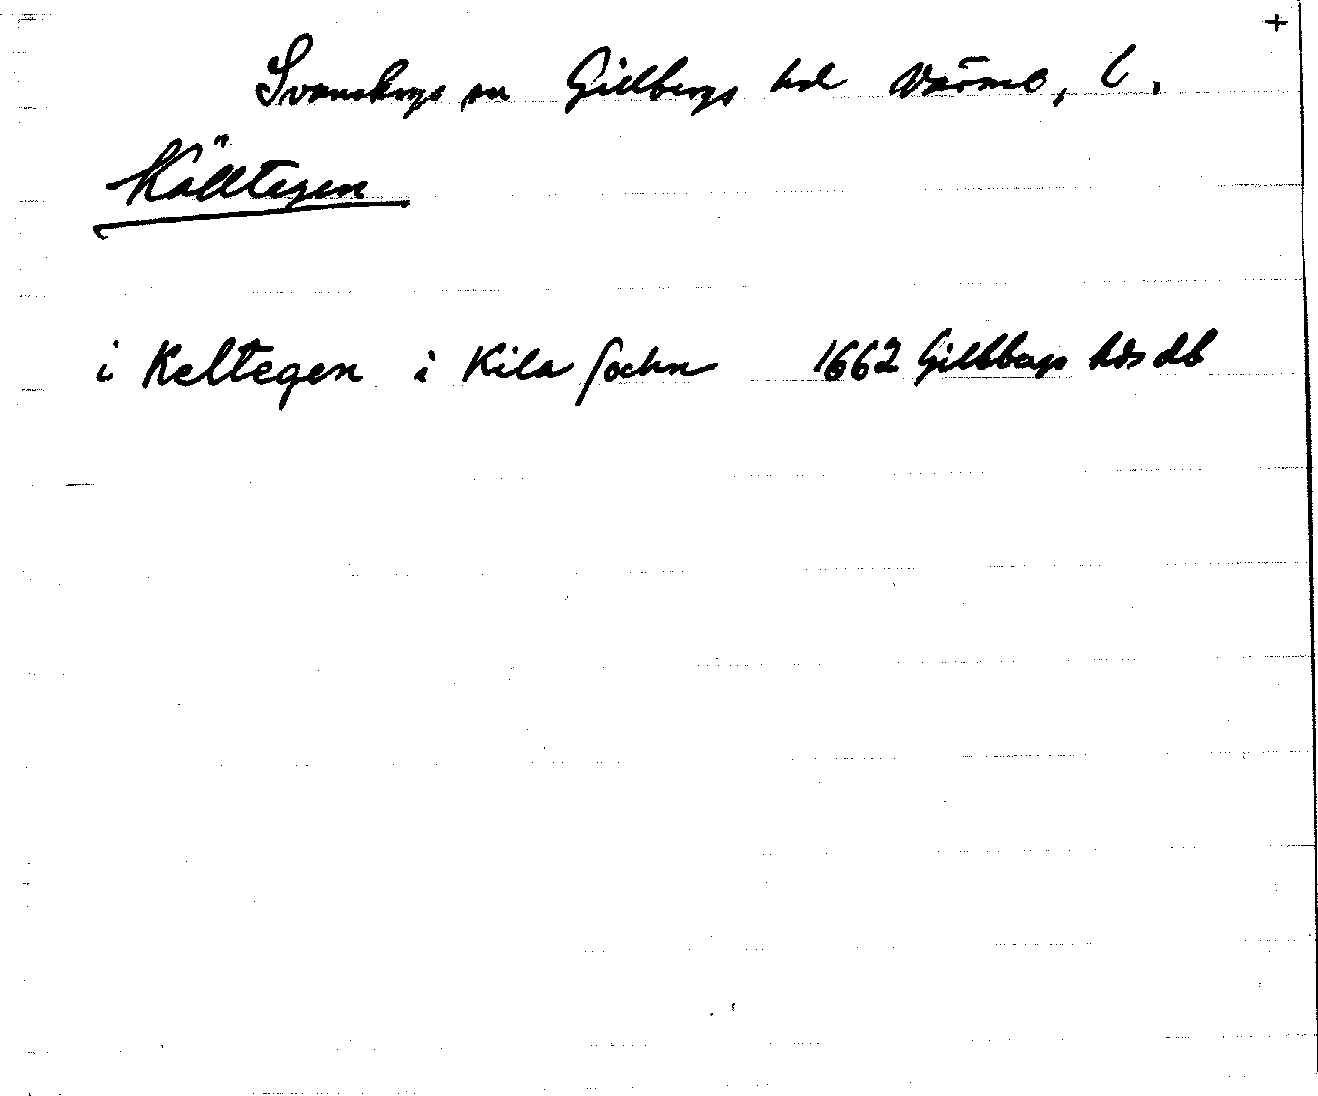 +
Svanskogs sn Gillbergs hd Värml. l.
Källtegen
i Keltegen i Kila sochn 1662 Gillbergs hds db